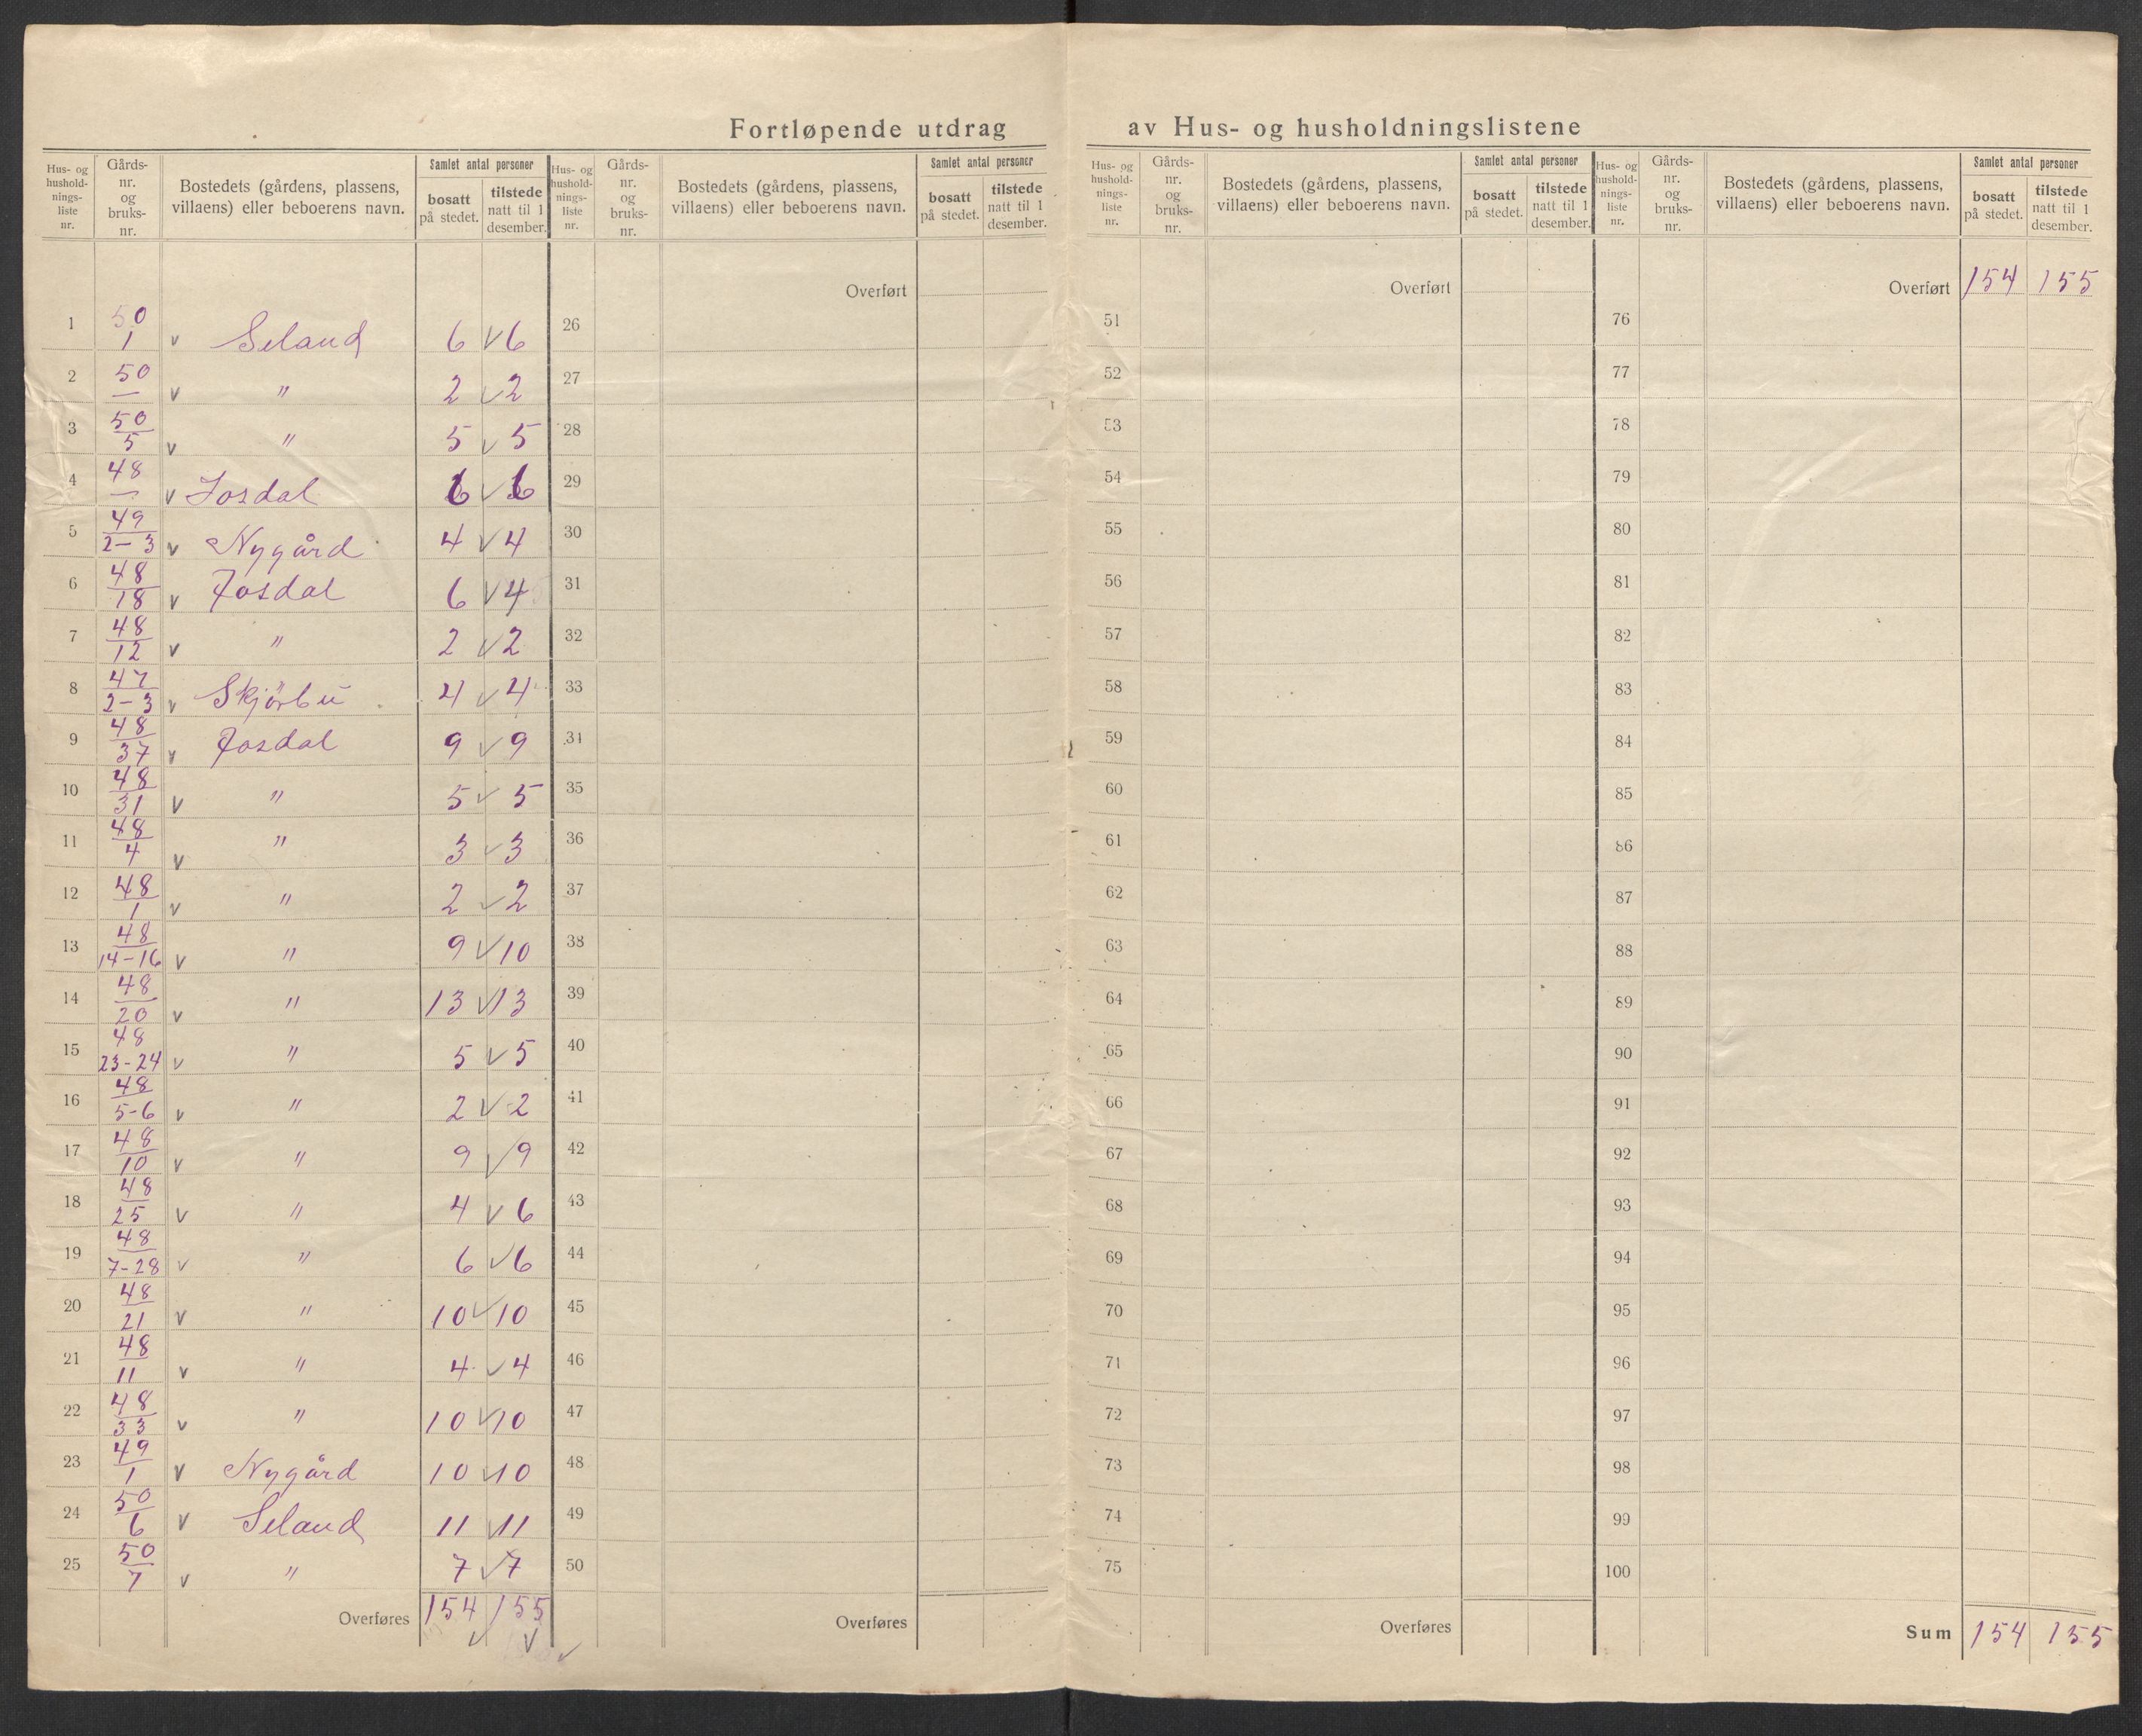 Fortløpende utdrag av Hus- og husholdningslistene
Hus- og hushold-nings-liste nr. | Gårds-nr. og bruks-nr. | Bostedets (gårdens, plassens, villaens) eller beboerens navn. | Samlet antal personer | bosatt på stedet. | tilstede natt til 1 desember.
1 50/1 v Seland 6 v 6
2 50/— v " 2 v 2
3 50/5 v " 5 v 5
4 48/— v Josdal 6 v 6
5 49/2-3 v Nygård 4 v 4
6 48/18 v Josdal 6 v 4
7 48/12 v " 2 v 2
8 47/2-3 v Skjörbu 4 v 4
9 48/37 v Josdal 9 v 9
10 48/31 v " 5 v 5
11 48/4 v " 3 v 3
12 48/1 v " 2 v 2
13 48/14-16 v " 9 v 10
14 48/20 v " 13 v 13
15 48/23-24 v " 5 v 5
16 48/5-6 v " 2 v 2
17 48/10 v " 9 v 9
18 48/25 v " 4 v 6
19 48/7-28 v " 6 v 6
20 48/21 v " 10 v 10
21 48/11 v " 4 v 4
22 48/33 v " 10 v 10
23 49/1 v Nygård 10 v 10
24 50/6 v Seland 11 v 11
25 50/7 v " 7 v 7
Overføres 154 155
v v v
Hus- og hushold-nings-liste nr. | Gårds-nr. og bruks-nr. | Bostedets (gårdens, plassens, villaens) eller beboerens navn. | Samlet antal personer | bosatt på stedet. | tilstede natt til 1 desember.
Overført
26
27
28
29
30
31
32
33
34
35
36
37
38
39
40
41
42
43
44
45
46
47
48
49
50
Overføres
Hus- og hushold-nings-liste nr. | Gårds-nr. og bruks-nr. | Bostedets (gårdens, plassens, villaens) eller beboerens navn. | Samlet antal personer | bosatt på stedet. | tilstede natt til 1 desember.
Overført
51
52
53
54
55
56
57
58
59
60
61
62
63
64
65
66
67
68
69
70
71
72
73
74
75
Overføres
Hus- og hushold-nings-liste nr. | Gårds-nr. og bruks-nr. | Bostedets (gårdens, plassens, villaens) eller beboerens navn. | Samlet antal personer | bosatt på stedet. | tilstede natt til 1 desember.
Overført 154 155
76
77
78
79
80
81
82
83
84
85
86
87
88
89
90
91
92
93
94
95
96
97
98
99
100
Sum 154 155